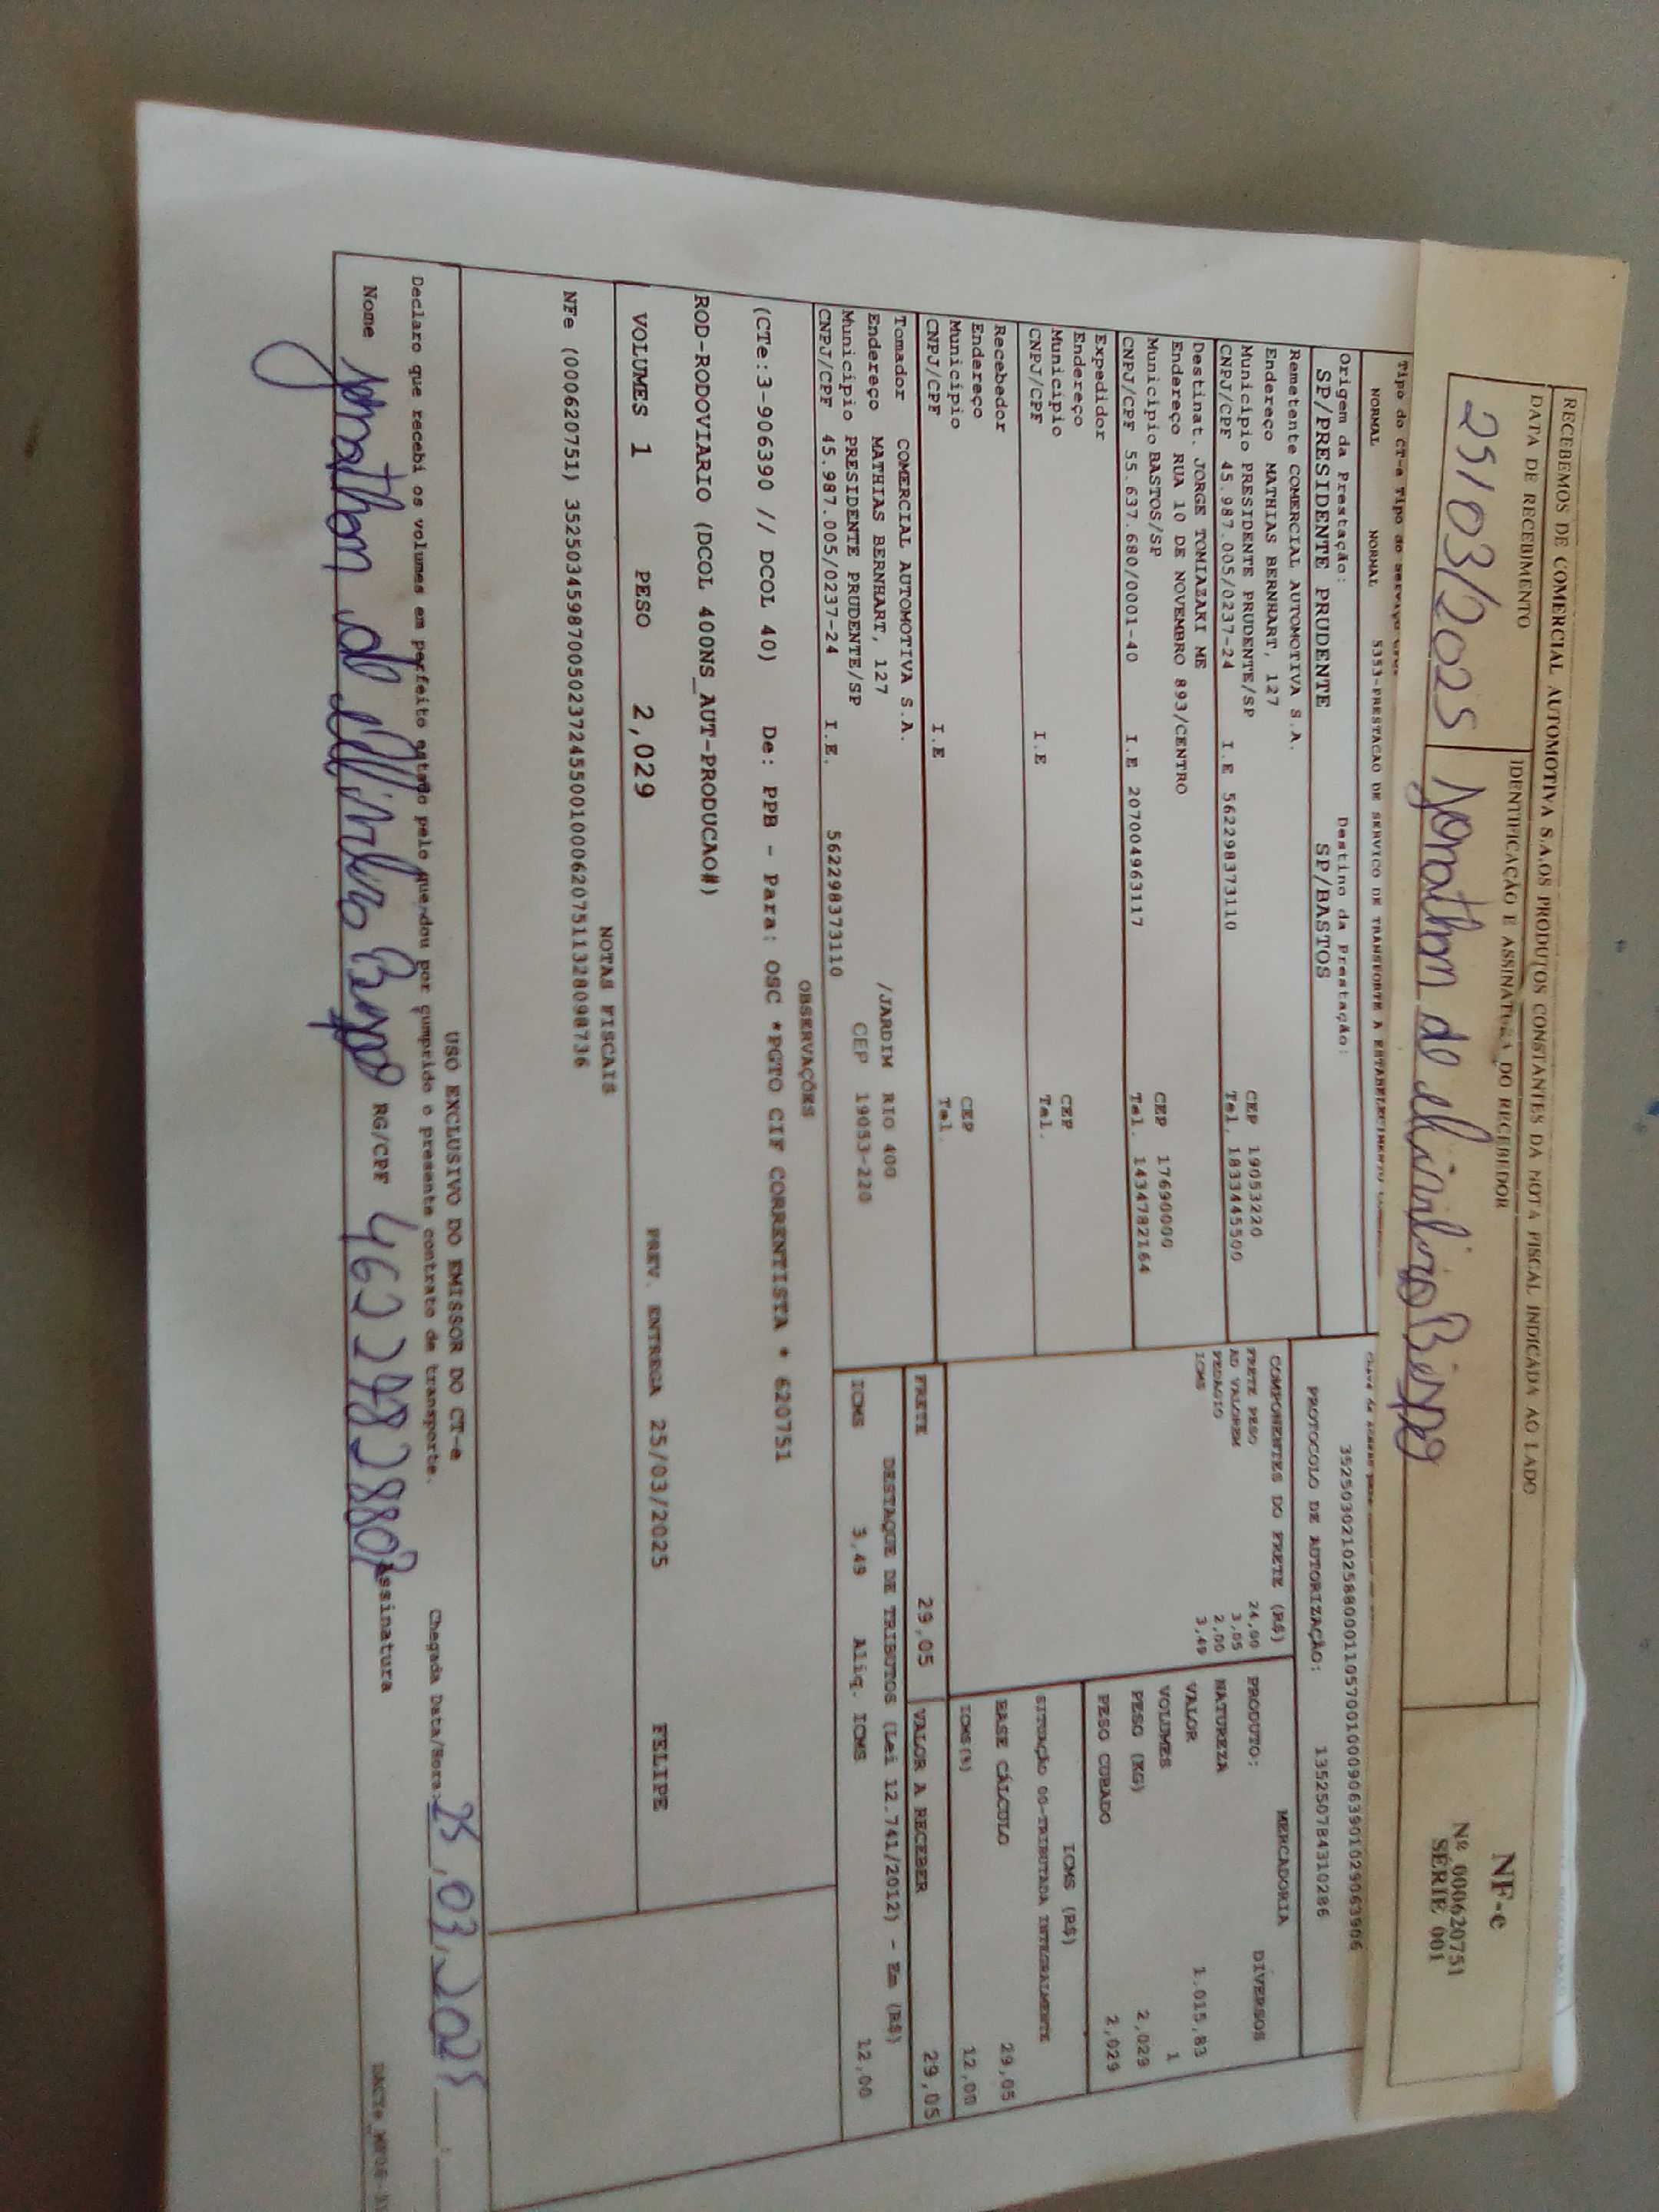 RECEBEMOS DE COMERCIAL AUTOMOTIVA S.A.OS PRODUTOS CONSTANTES DA NOTA FISCAL INDICADA AO LADO
DATA DE RECEBIMENTO
IDENTIFICAÇÃO E ASSINATURA DO RECEBEDOR
25/03/2025
Jonathan de
Bispo
NF-e
Nº 000620751
SÉRIE 001
Tipo do CT-e Tipo do Serviço
NORMAL NORMAL 5353-PRESTACAO DE SERVICO DE TRANSPORTE A ESTABELECIMENTO
35250302102588000110570010009063901029063906
Origem da Prestação: Destino da Prestação:
SP/PRESIDENTE PRUDENTE SP/BASTOS
PROTOCOLO DE AUTORIZAÇÃO: 135250784310286
Remetente COMERCIAL AUTOMOTIVA S.A.
Endereço MATHIAS BERNHART, 127
Municipio PRESIDENTE PRUDENTE/SP CEP 19053220
CNPJ/CPF 45.987.005/0237-24 I.E 562298373110 Tel. 1833445500
Destinat. JORGE TOMIAZAKI ME
Endereço RUA 10 DE NOVEMBRO 893/CENTRO
Municipio BASTOS/SP CEP 17690000
CNPJ/CPF 55.637.680/0001-40 I.E 207004963117 Tel. 1434782164
Expedidor
Endereço
Município CEP
CNPJ/CPF I.E Tel.
Recebedor
Endereço
Município CEP
CNPJ/CPF I.E Tel.
Tomador COMERCIAL AUTOMOTIVA S.A.
Endereço MATHIAS BERNHART, 127 /JARDIM RIO 400
Municipio PRESIDENTE PRUDENTE/SP CEP 19053-220
CNPJ/CPF 45.987.005/0237-24 I.E. 562298373110
COMPONENTES DO FRETE (R$)
FRETE PESO 24,00
AD VALOREM 3,05
PEDAGIO 2,00
ICMS 3,49
MERCADORIA
PRODUTO: DIVERSOS
NATUREZA
VALOR 1.015,83
VOLUMES 1
PESO (KG) 2,029
PESO CUBADO 2,029
ICMS (R$)
SITUAÇÃO 00-TRIBUTADA INTEGRALMENTE
BASE CÁLCULO 29,05
ICMS(%) 12,00
FRETE 29,05 VALOR A RECEBER 29,05
DESTAQUE DE TRIBUTOS (Lei 12.741/2012) - Em (R$)
ICMS 3,49 Aliq. ICMS 12,00
OBSERVAÇÕES
(CTe:3-906390 // DCOL 40) De: PPB - Para: OSC *PGTO CIF CORRENTISTA * 620751
ROD-RODOVIARIO (DCOL 400NS_AUT-PRODUCAO#)
VOLUMES 1 PESO 2,029 PREV. ENTREGA 25/03/2025 FELIPE
NOTAS FISCAIS
NFe (000620751) 35250345987005023724550010006207511328098736
USO EXCLUSIVO DO EMISSOR DO CT-e
Declaro que recebi os volumes em perfeito estado pelo que dou por cumprido o presente contrato de transporte. Chegada Data/Hora: 25,03,2025
Nome Jonathan Bispo RG/CPF Assinatura